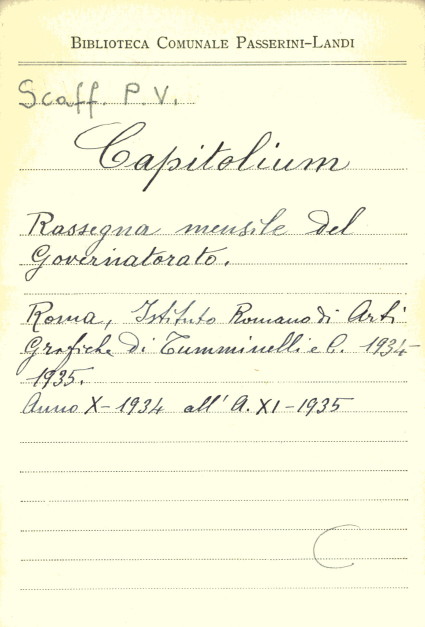 BIBLIOTECA COMUNALE PASSERINI–LANDI
Scaff. P. V.
Capitolium
Rassegna mensile del
Governatorato.
Roma, Istituto Romano di Arti
Grafiche di Tumminelli e C. 1934-
1935.
Anno X-1934 all' A. XI-1935